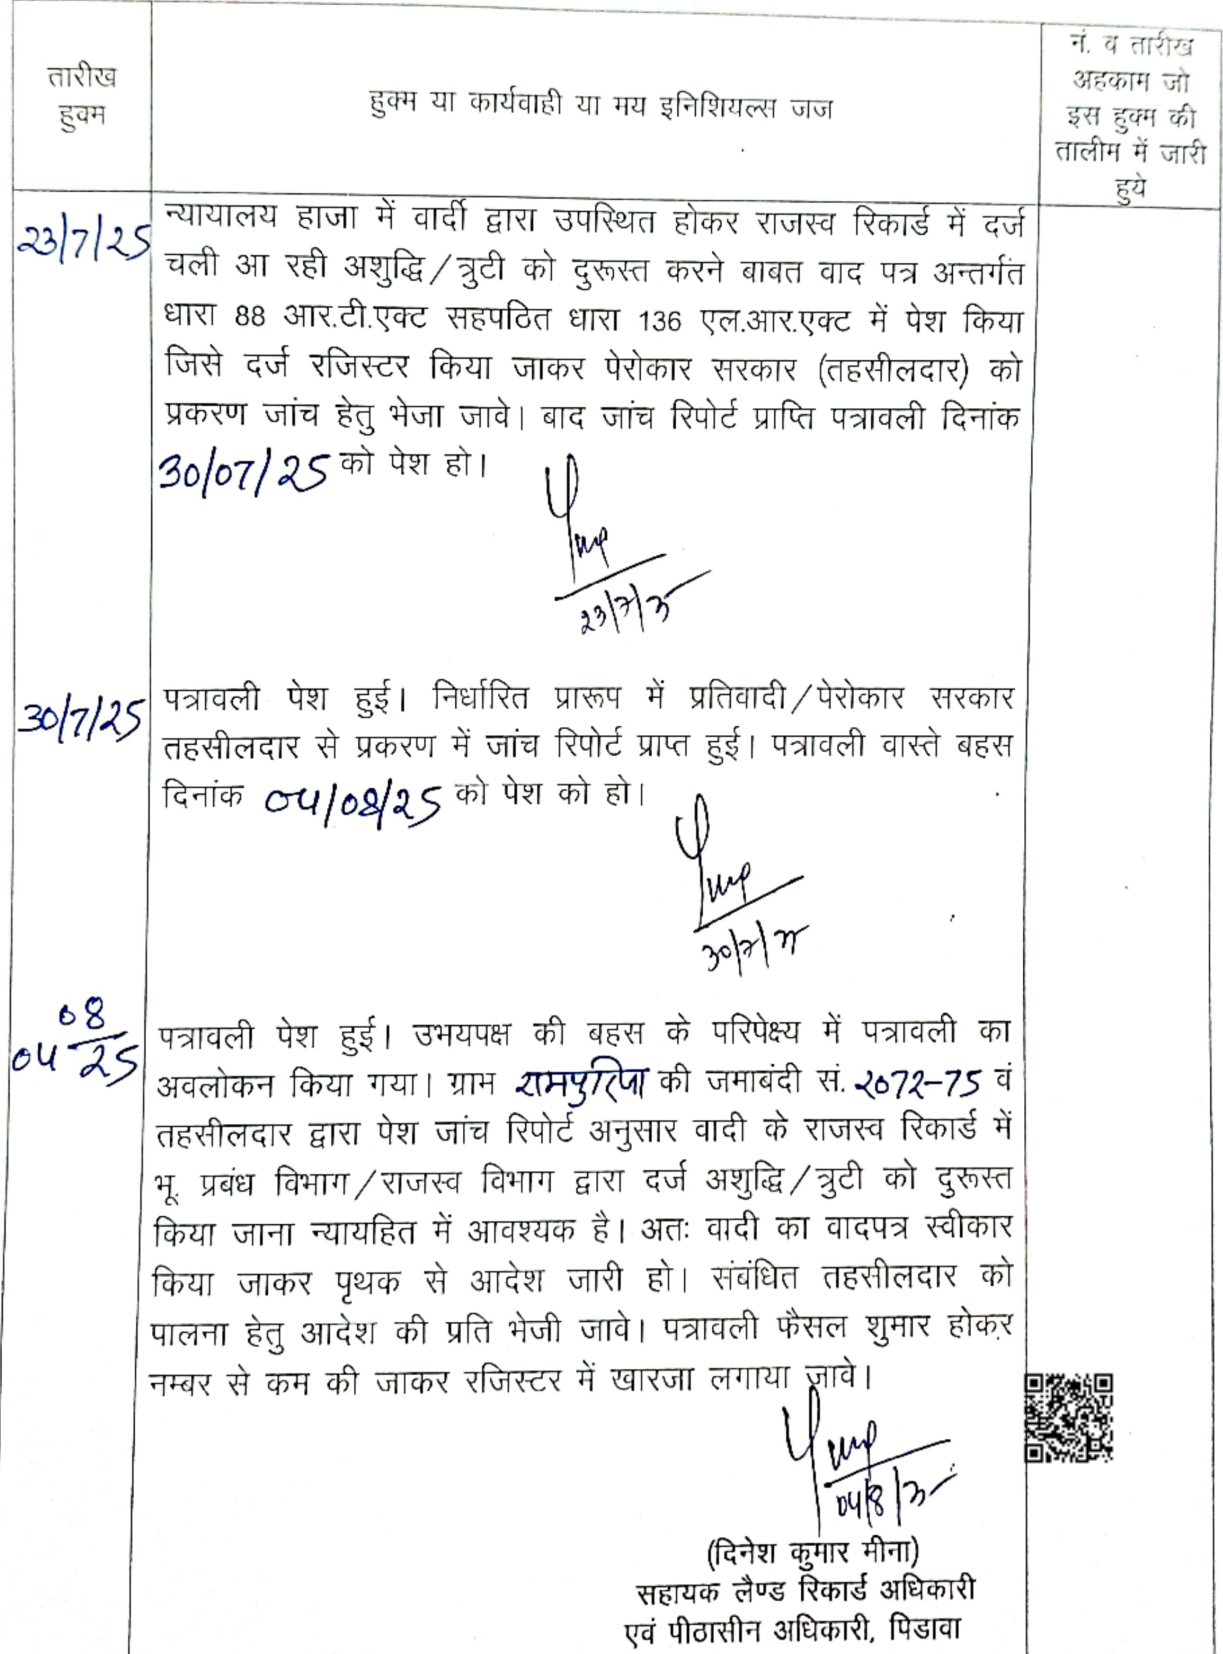 तारीख
हुक्म
हुक्म या कार्यवाही या मय इनिशियल्स जज
नं. व तारीख
अहकाम जो
इस हुक्म की
तालीम में जारी
हुये
23/7/25
न्यायालय हाजा में वार्दी द्वारा उपस्थित होकर राजस्व रिकार्ड में दर्ज
चली आ रही अशुद्धि/त्रुटी को दुरूस्त करने बाबत वाद पत्र अन्तर्गत
धारा 88 आर.टी.एक्ट सहपठित धारा 136 एल.आर.एक्ट में पेश किया
जिसे दर्ज रजिस्टर किया जाकर पेरोकार सरकार (तहसीलदार) को
प्रकरण जांच हेतु भेजा जावे। बाद जांच रिपोर्ट प्राप्ति पत्रावली दिनांक
30/07/25 को पेश हो।
23/7/25
30/7/25
पत्रावली पेश हुई। निर्धारित प्रारूप में प्रतिवादी/पेरोकार सरकार
तहसीलदार से प्रकरण में जांच रिपोर्ट प्राप्त हुई। पत्रावली वास्ते बहस
दिनांक 04/08/25 को पेश को हो।
30/7/25
04 08/25
पत्रावली पेश हुई। उभयपक्ष की बहस के परिपेक्ष्य में पत्रावली का
अवलोकन किया गया। ग्राम रामपुरिया की जमाबंदी सं. 2072-75 वं
तहसीलदार द्वारा पेश जांच रिपोर्ट अनुसार वादी के राजस्व रिकार्ड में
भू. प्रबंध विभाग/राजस्व विभाग द्वारा दर्ज अशुद्धि/त्रुटी को दुरूस्त
किया जाना न्यायहित में आवश्यक है। अतः वादी का वादपत्र स्वीकार
किया जाकर पृथक से आदेश जारी हो। संबंधित तहसीलदार को
पालना हेतु आदेश की प्रति भेजी जावे। पत्रावली फैसल शुमार होकर
नम्बर से कम की जाकर रजिस्टर में खारजा लगाया जावे।
04/8/25
(दिनेश कुमार मीना)
सहायक लैण्ड रिकार्ड अधिकारी
एवं पीठासीन अधिकारी, पिडावा